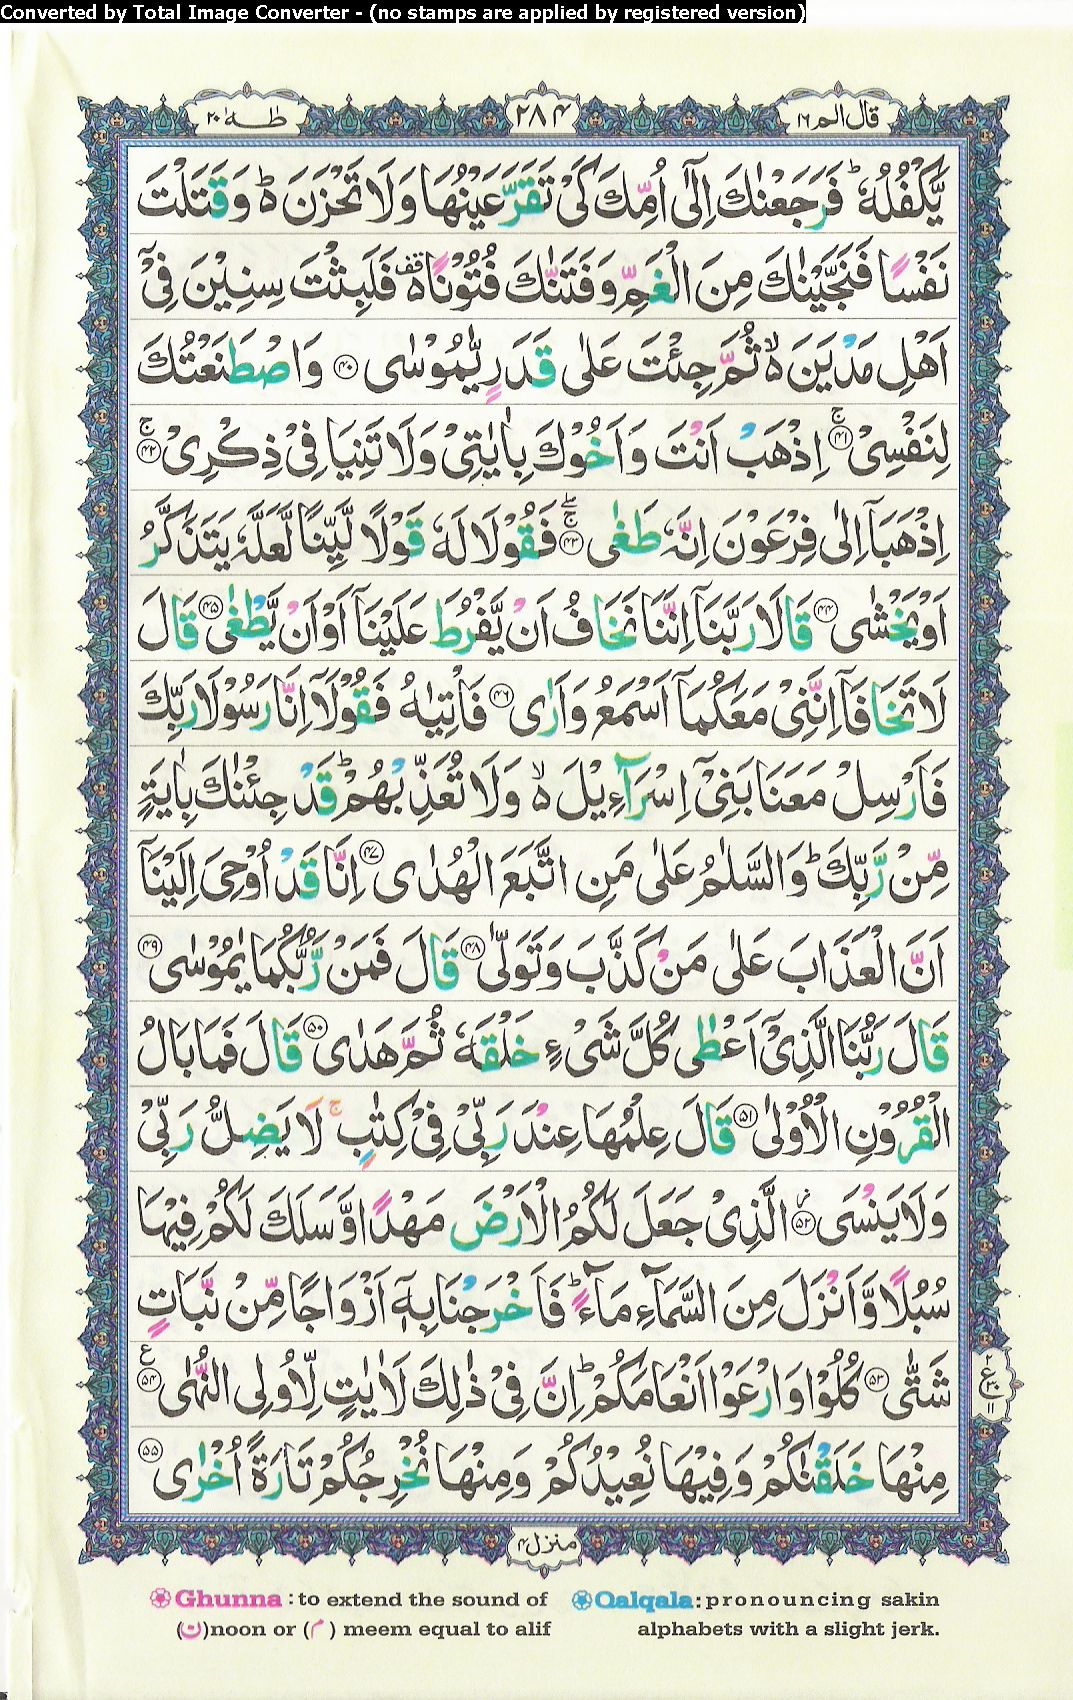 Converted by Total Image Converter - (no stamps are applied by registered version)
قال الم ١٦
٢٨٤
طٰهٰ ٢٠
يَّكْفُلُهٗ ؕ فَرَجَعْنٰكَ اِلٰٓى اُمِّكَ كَىْ تَقَرَّ عَيْنُهَا وَلَا تَحْزَنَ ؕ۬ وَقَتَلْتَ
نَفْسًا فَنَجَّيْنٰكَ مِنَ الْغَمِّ وَفَتَنّٰكَ فُتُوْنًا ۟ۚ قف فَلَبِثْتَ سِنِيْنَ فِىْٓ
اَهْلِ مَدْيَنَ ۙ۬ ثُمَّ جِئْتَ عَلٰى قَدَرٍ يّٰمُوْسٰى ﴿۴۰﴾ وَاصْطَنَعْتُكَ
لِنَفْسِىْ ۚ﴿۴۱﴾ اِذْهَبْ اَنْتَ وَاَخُوْكَ بِاٰيٰتِىْ وَلَا تَنِيَا فِىْ ذِكْرِىْ ۚ﴿۴۲﴾
اِذْهَبَآ اِلٰى فِرْعَوْنَ اِنَّهٗ طَغٰى ۚۖ﴿۴۳﴾ فَقُوْلَا لَهٗ قَوْلًا لَّيِّنًا لَّعَلَّهٗ يَتَذَكَّرُ
اَوْ يَخْشٰى ﴿۴۴﴾ قَالَا رَبَّنَآ اِنَّنَا نَخَافُ اَنْ يَّفْرُطَ عَلَيْنَآ اَوْ اَنْ يَّطْغٰى ﴿۴۵﴾ قَالَ
لَا تَخَافَآ اِنَّنِىْ مَعَكُمَآ اَسْمَعُ وَاَرٰى ﴿۴۶﴾ فَاْتِيٰهُ فَقُوْلَآ اِنَّا رَسُوْلَا رَبِّكَ
فَاَرْسِلْ مَعَنَا بَنِىْٓ اِسْرَآءِيْلَ ۙ۬ وَلَا تُعَذِّبْهُمْ ؕ قَدْ جِئْنٰكَ بِاٰيَةٍ
مِّنْ رَّبِّكَ ؕ وَالسَّلٰمُ عَلٰى مَنِ اتَّبَعَ الْهُدٰى ﴿۴۷﴾ اِنَّا قَدْ اُوْحِىَ اِلَيْنَآ
اَنَّ الْعَذَابَ عَلٰى مَنْ كَذَّبَ وَتَوَلّٰى ﴿۴۸﴾ قَالَ فَمَنْ رَّبُّكُمَا يٰمُوْسٰى ﴿۴۹﴾
قَالَ رَبُّنَا الَّذِىْٓ اَعْطٰى كُلَّ شَىْءٍ خَلْقَهٗ ثُمَّ هَدٰى ﴿۵۰﴾ قَالَ فَمَا بَالُ
الْقُرُوْنِ الْاُوْلٰى ﴿۵۱﴾ قَالَ عِلْمُهَا عِنْدَ رَبِّىْ فِىْ كِتٰبٍ ۚ لَا يَضِلُّ رَبِّىْ
وَلَا يَنْسَى ﴿۵۲﴾ الَّذِىْ جَعَلَ لَكُمُ الْاَرْضَ مَهْدًا وَّسَلَكَ لَكُمْ فِيْهَا
سُبُلًا وَّاَنْزَلَ مِنَ السَّمَآءِ مَآءً ؕ فَاَخْرَجْنَا بِهٖۤ اَزْوَاجًا مِّنْ نَّبَاتٍ
شَتّٰى ﴿۵۳﴾ كُلُوْا وَارْعَوْا اَنْعَامَكُمْ ؕ اِنَّ فِىْ ذٰلِكَ لَاٰيٰتٍ لِّاُولِى النُّهٰى ﴿۵۴﴾ ع
ع ٢ ٣٠ ١١
مِنْهَا خَلَقْنٰكُمْ وَفِيْهَا نُعِيْدُكُمْ وَمِنْهَا نُخْرِجُكُمْ تَارَةً اُخْرٰى ﴿۵۵﴾
منزل ۴
Ghunna : to extend the sound of (ن)noon or (م) meem equal to alif
Qalqala: pronouncing sakin alphabets with a slight jerk.